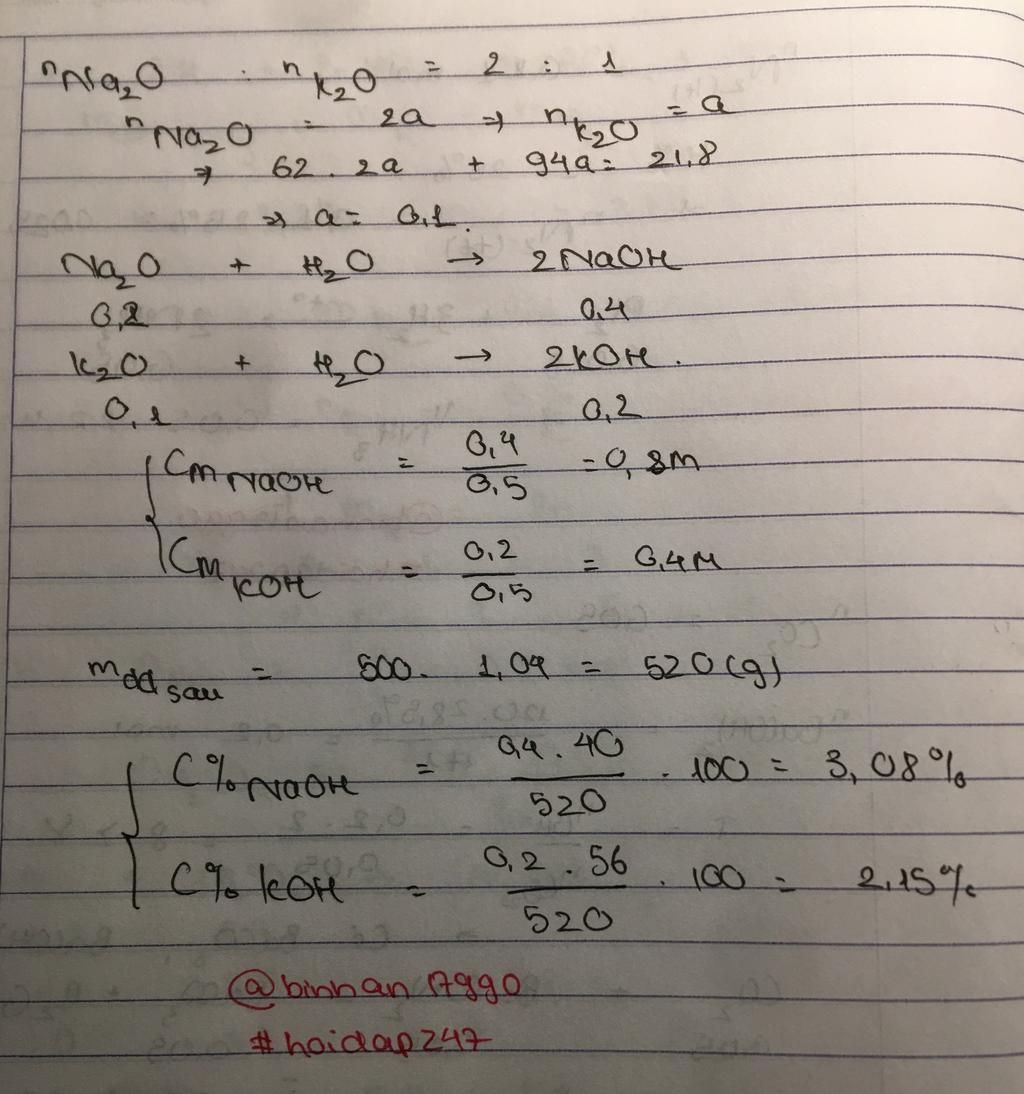 nNa₂O : nK₂O = 2 : 1
nNa₂O = 2a => nK₂O = a
=> 62 . 2a + 94a = 21,8
=> a = 0,1.
Na₂O + H₂O → 2NaOH
0,2 0,4
K₂O + H₂O → 2KOH.
0,1 0,2
CM NaOH = 0,4/0,5 = 0,8M
CM KOH = 0,2/0,5 = 0,4M
mdd sau = 500. 1,04 = 520 (g)
C% NaOH = 0,4 . 40/520 . 100 = 3,08%
C% KOH = 0,2 . 56/520 . 100 = 2,15%
@binhan17990
#hoidap247